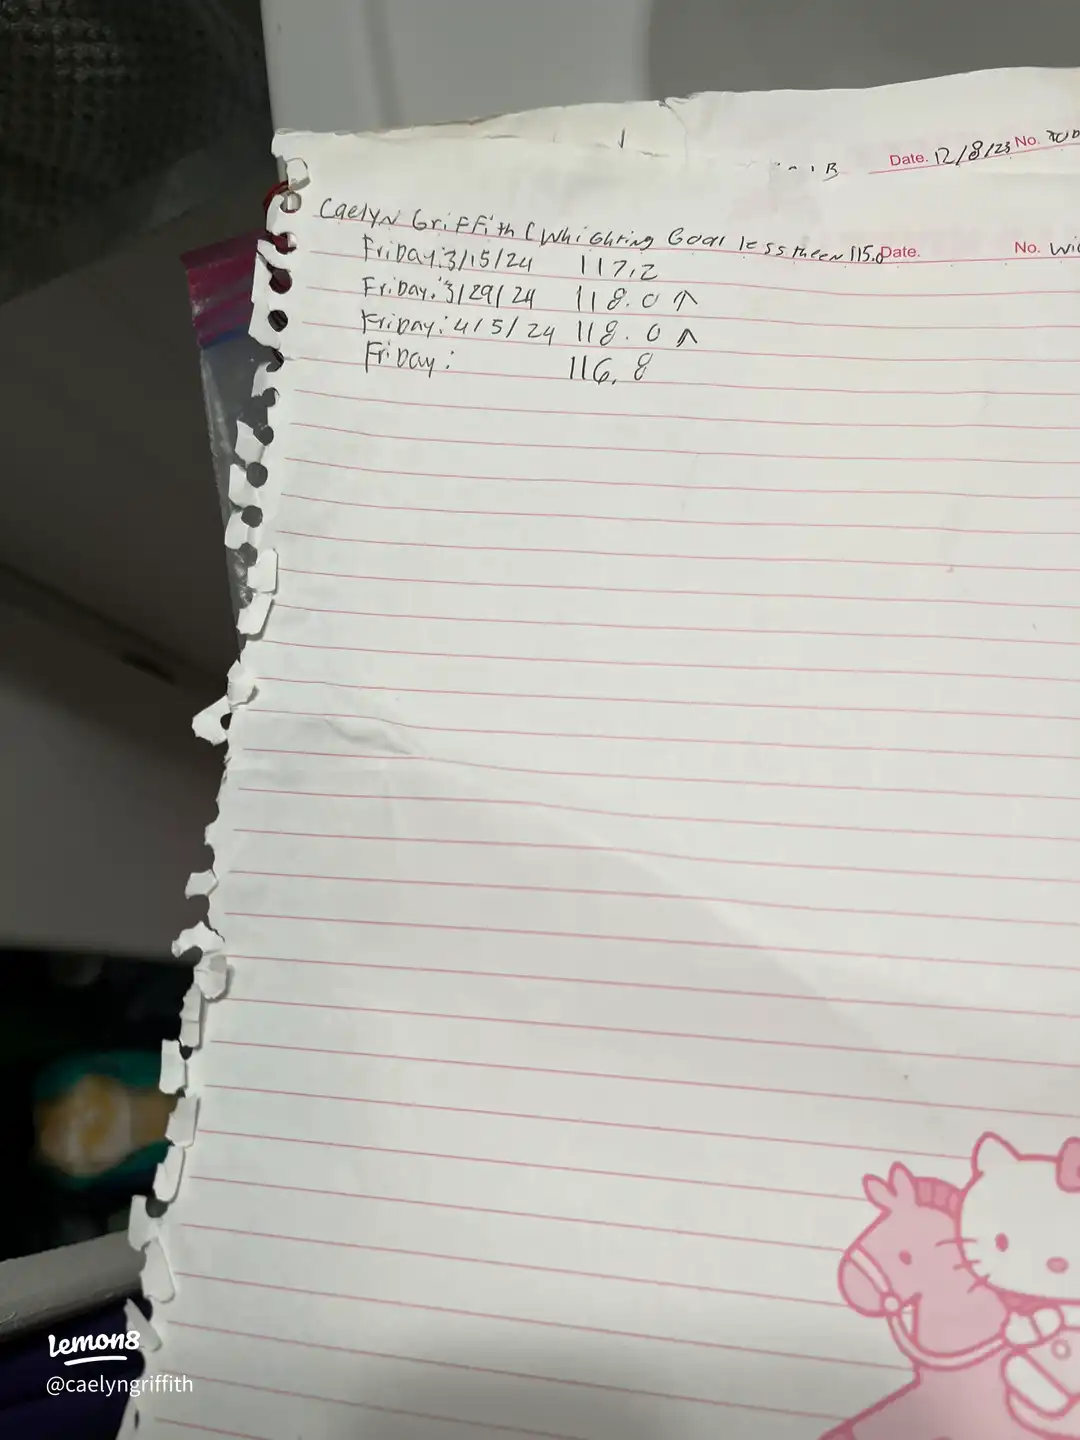 Date. 12/8/23 No.
Caelyn Griffith (Whighring Goal less theen 115.0
Date. No.
Friday: 3/15/24 117.2
Friday: 3/29/24 118.0 ↑
Friday: 4/5/24 118.0 ↑
Friday: 116.8
Lemon8
@caelyngriffith